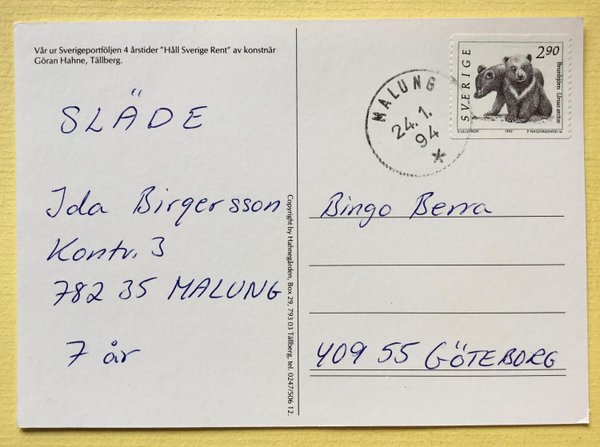 Vår ur Sverigeportföljen 4 årstider "Håll Sverige Rent" av konstnär
Göran Hahne, Tällberg.
SLÄDE
Ida Birgersson
Kontv. 3
782 35 MALUNG
7 år
Copyright by Hahnegården, Box 29, 793 03 Tällberg, tel. 0247/506 12.
MALUNG
24.1.
94
SVERIGE
2 90
Brunbjörn Ursus arctos
Bingo Berra
409 55 GÖTEBORG